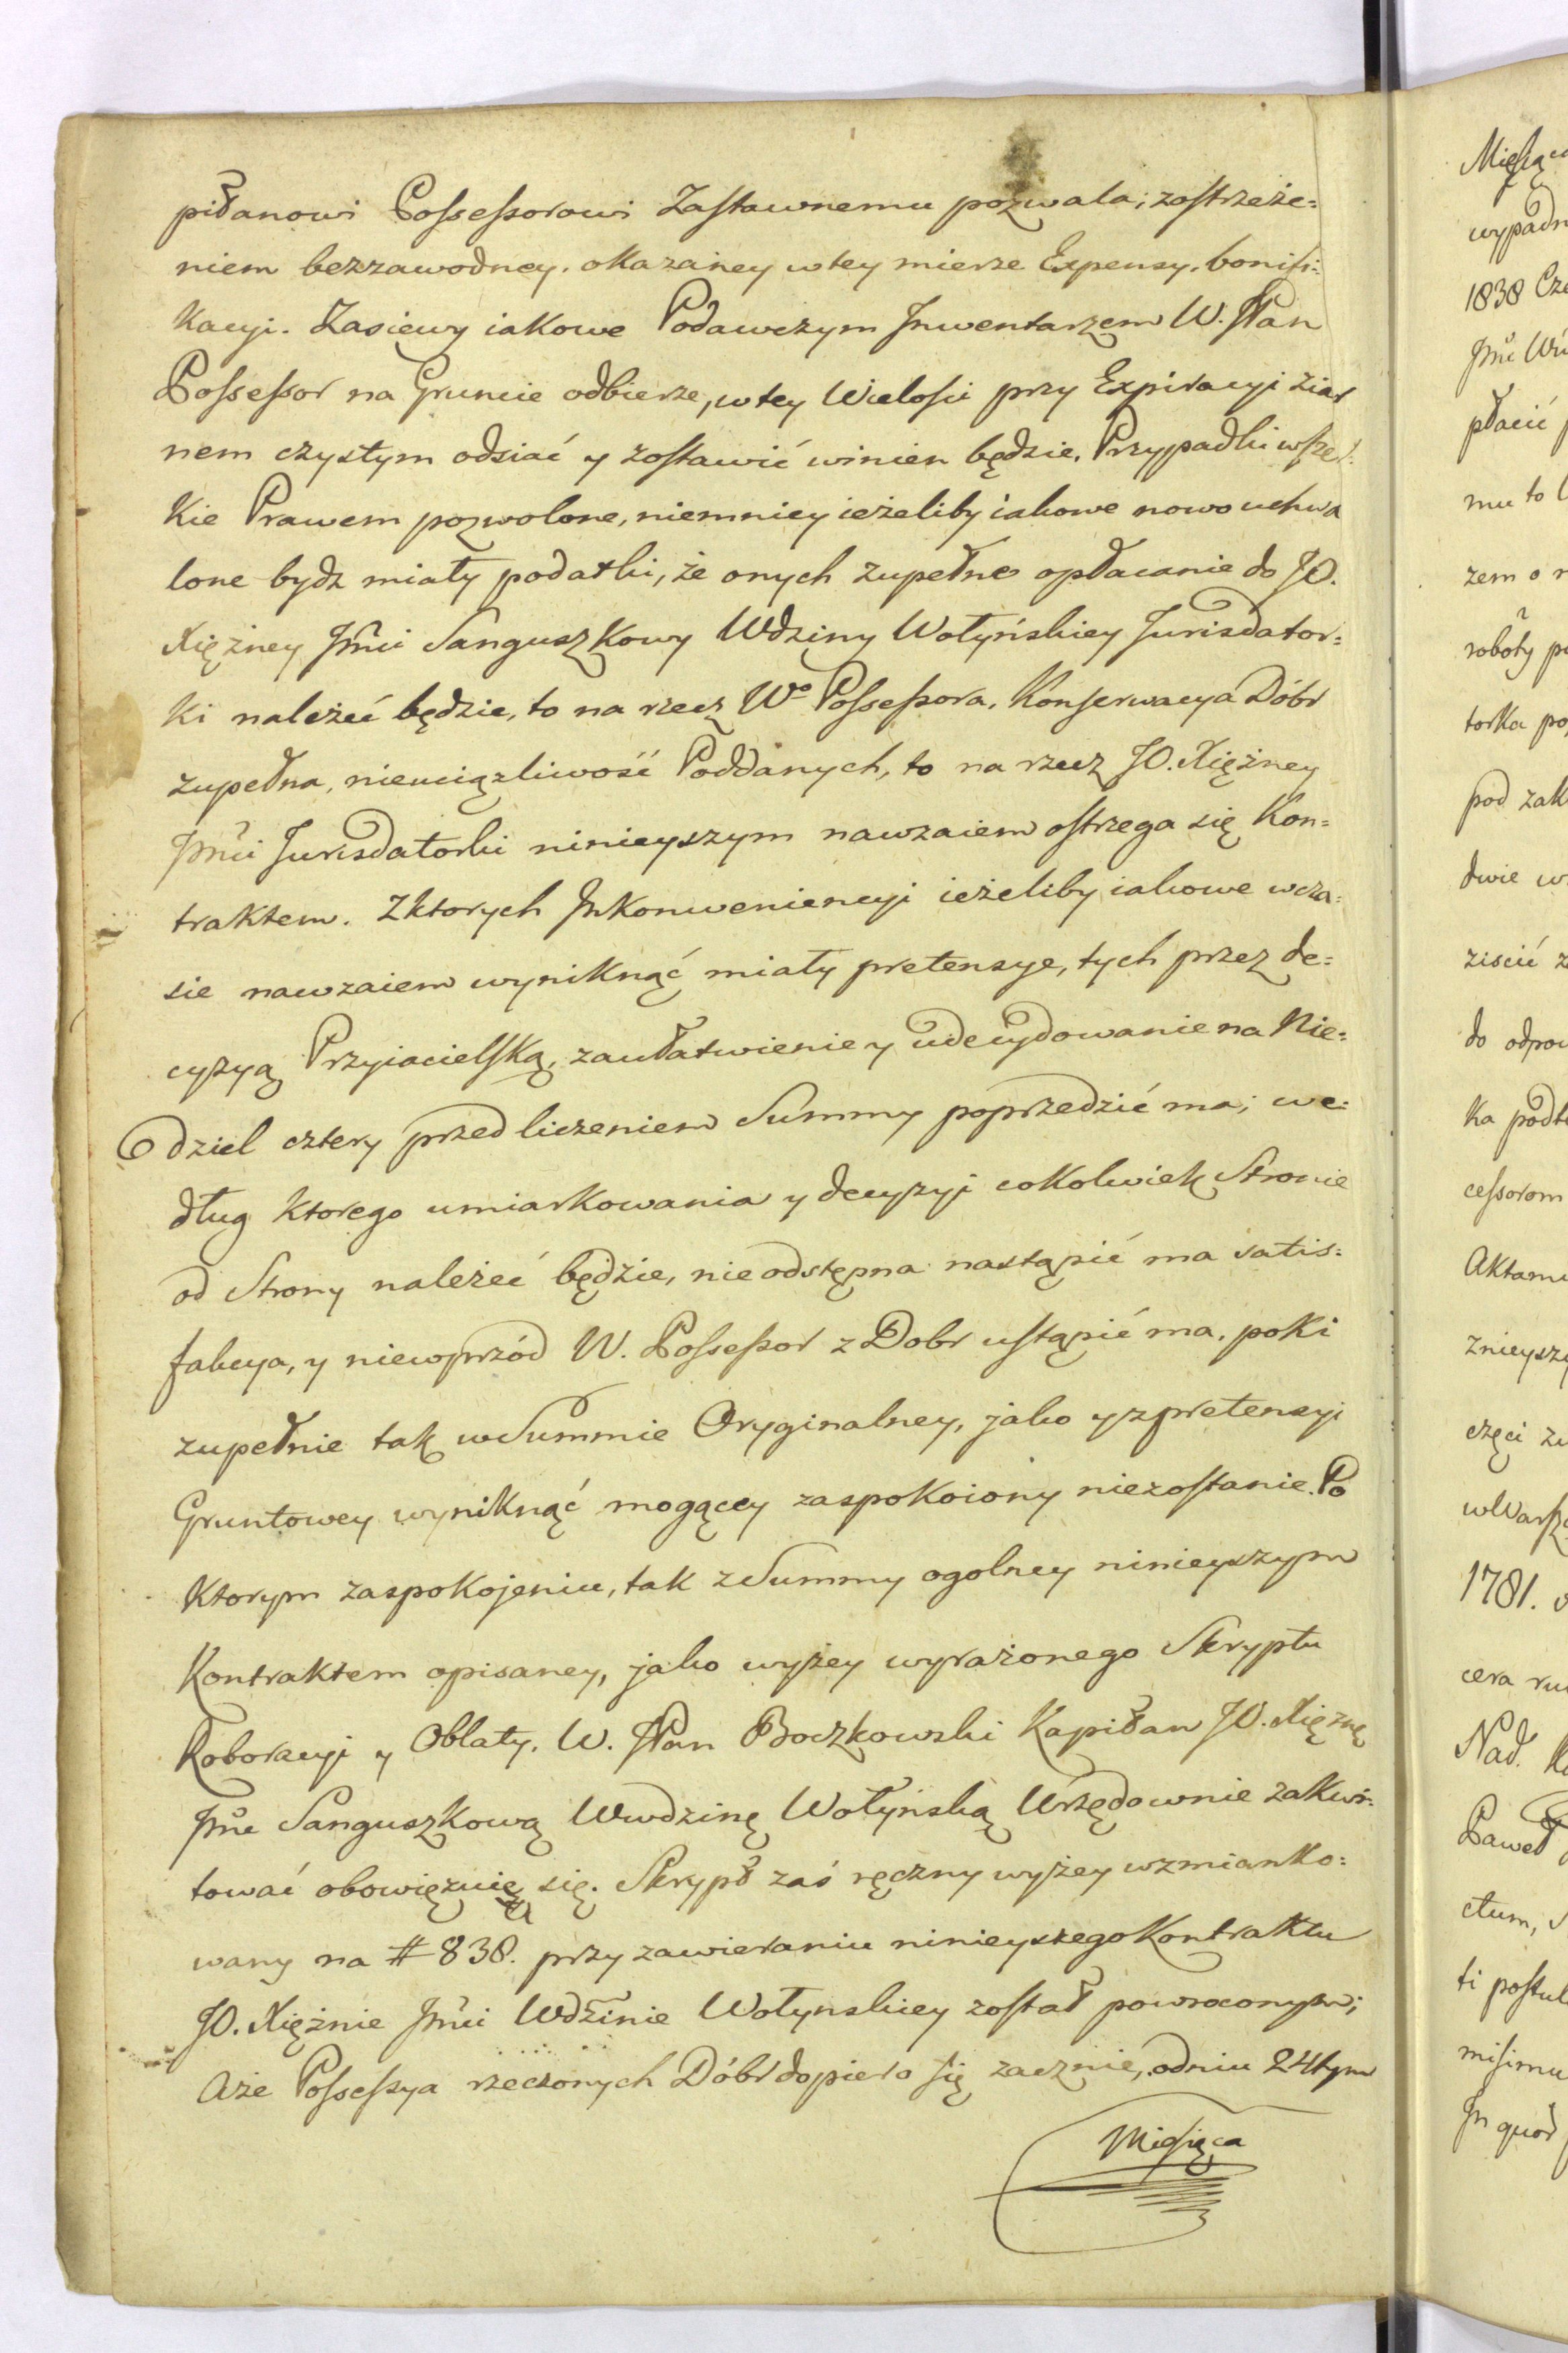 pitanowi Possessorowi Zastawnemu pozwala; zostrzeże=
niem bezzawodney, okazaney wtey mierze Expensy, bonifi=
kacyi. Zasiewy iakowe Podawczym Inwentarzem W. JPan
Possessor na Gruncie odbierze, wtey Wielosci przy Expiracyi ziar
nem czystym odsiać y zostawić winien będzie, Przypadki wszel=
kie Prawem pozwolone, niemniey ieżeliby iakowe nowo uchwa
lone bydz miały podatki, że onych zupełne opłacanie do JO.
Xiężney Jmci Sanguszkowy Wdziny Wołyńskiey Jurisdator=
ki należeć będzie, to na rzecz Wo Possessora, Konserwacya Dóbr
zupełna, nieuciązliwość Poddanych, to na rzecz JO. Xiężney
Jmci Jurisdatorki ninieyszym nawzaiem ostrzega się Kon=
traktem. Zktorych Inkonweniencyi ieżeliby iakowe wcza=
sie nawzaiem wyniknąć miały pretensye, tych przez de=
cyzyą Przyiacielską, zaułatwienie y udecydowanie na Nie=
dziel cztery przed liczeniem Summy poprzedzić ma; we=
dług ktorego umiarkowania y decyzyi cokolwiek Stronie
od Strony należeć będzie, nieodstępna nastąpić ma satis=
fakcya, y niewprzód W. Possessor z Dobr ustąpić ma, poki
zupełnie tak wSummie Oryginalney, jako yzpretensyi
Gruntowey wyniknąć mogącey zaspokoiony niezostanie. Po
ktorym zaspokojeniu, tak zSummy ogolney ninieyszym
Kontraktem opisaney, jako wyżey wyrażonego Skryptu
Roboracyi y Oblaty, W. JPan Boczkowski Kapitan JO. Xiężnę
Jmć Sanguszkową Wwdzinę Wołyńską Urzędownie zakwi=
tować obowięzuię się. Skrypt zaś ręczny wyżey wzmianko=
wany na # 838. przy zawieraniu ninieyszego Kontraktu
JO. Xiężnie Jmci Wdzinie Wołynskiey został powroconym;
Aże Possessya rzeczonych Dóbr dopiero się zacznie, odniu 24tym
Miesięca
Miesiąca
1838
Jmć
płacić
mu to
zem o
roboty
torka
pod
dwie
ziscić
do
ka
cessorom
Aktami
znieyszy
częci
w
1781.
cera
Nad.
Paweł
ctum,
ti
In quod